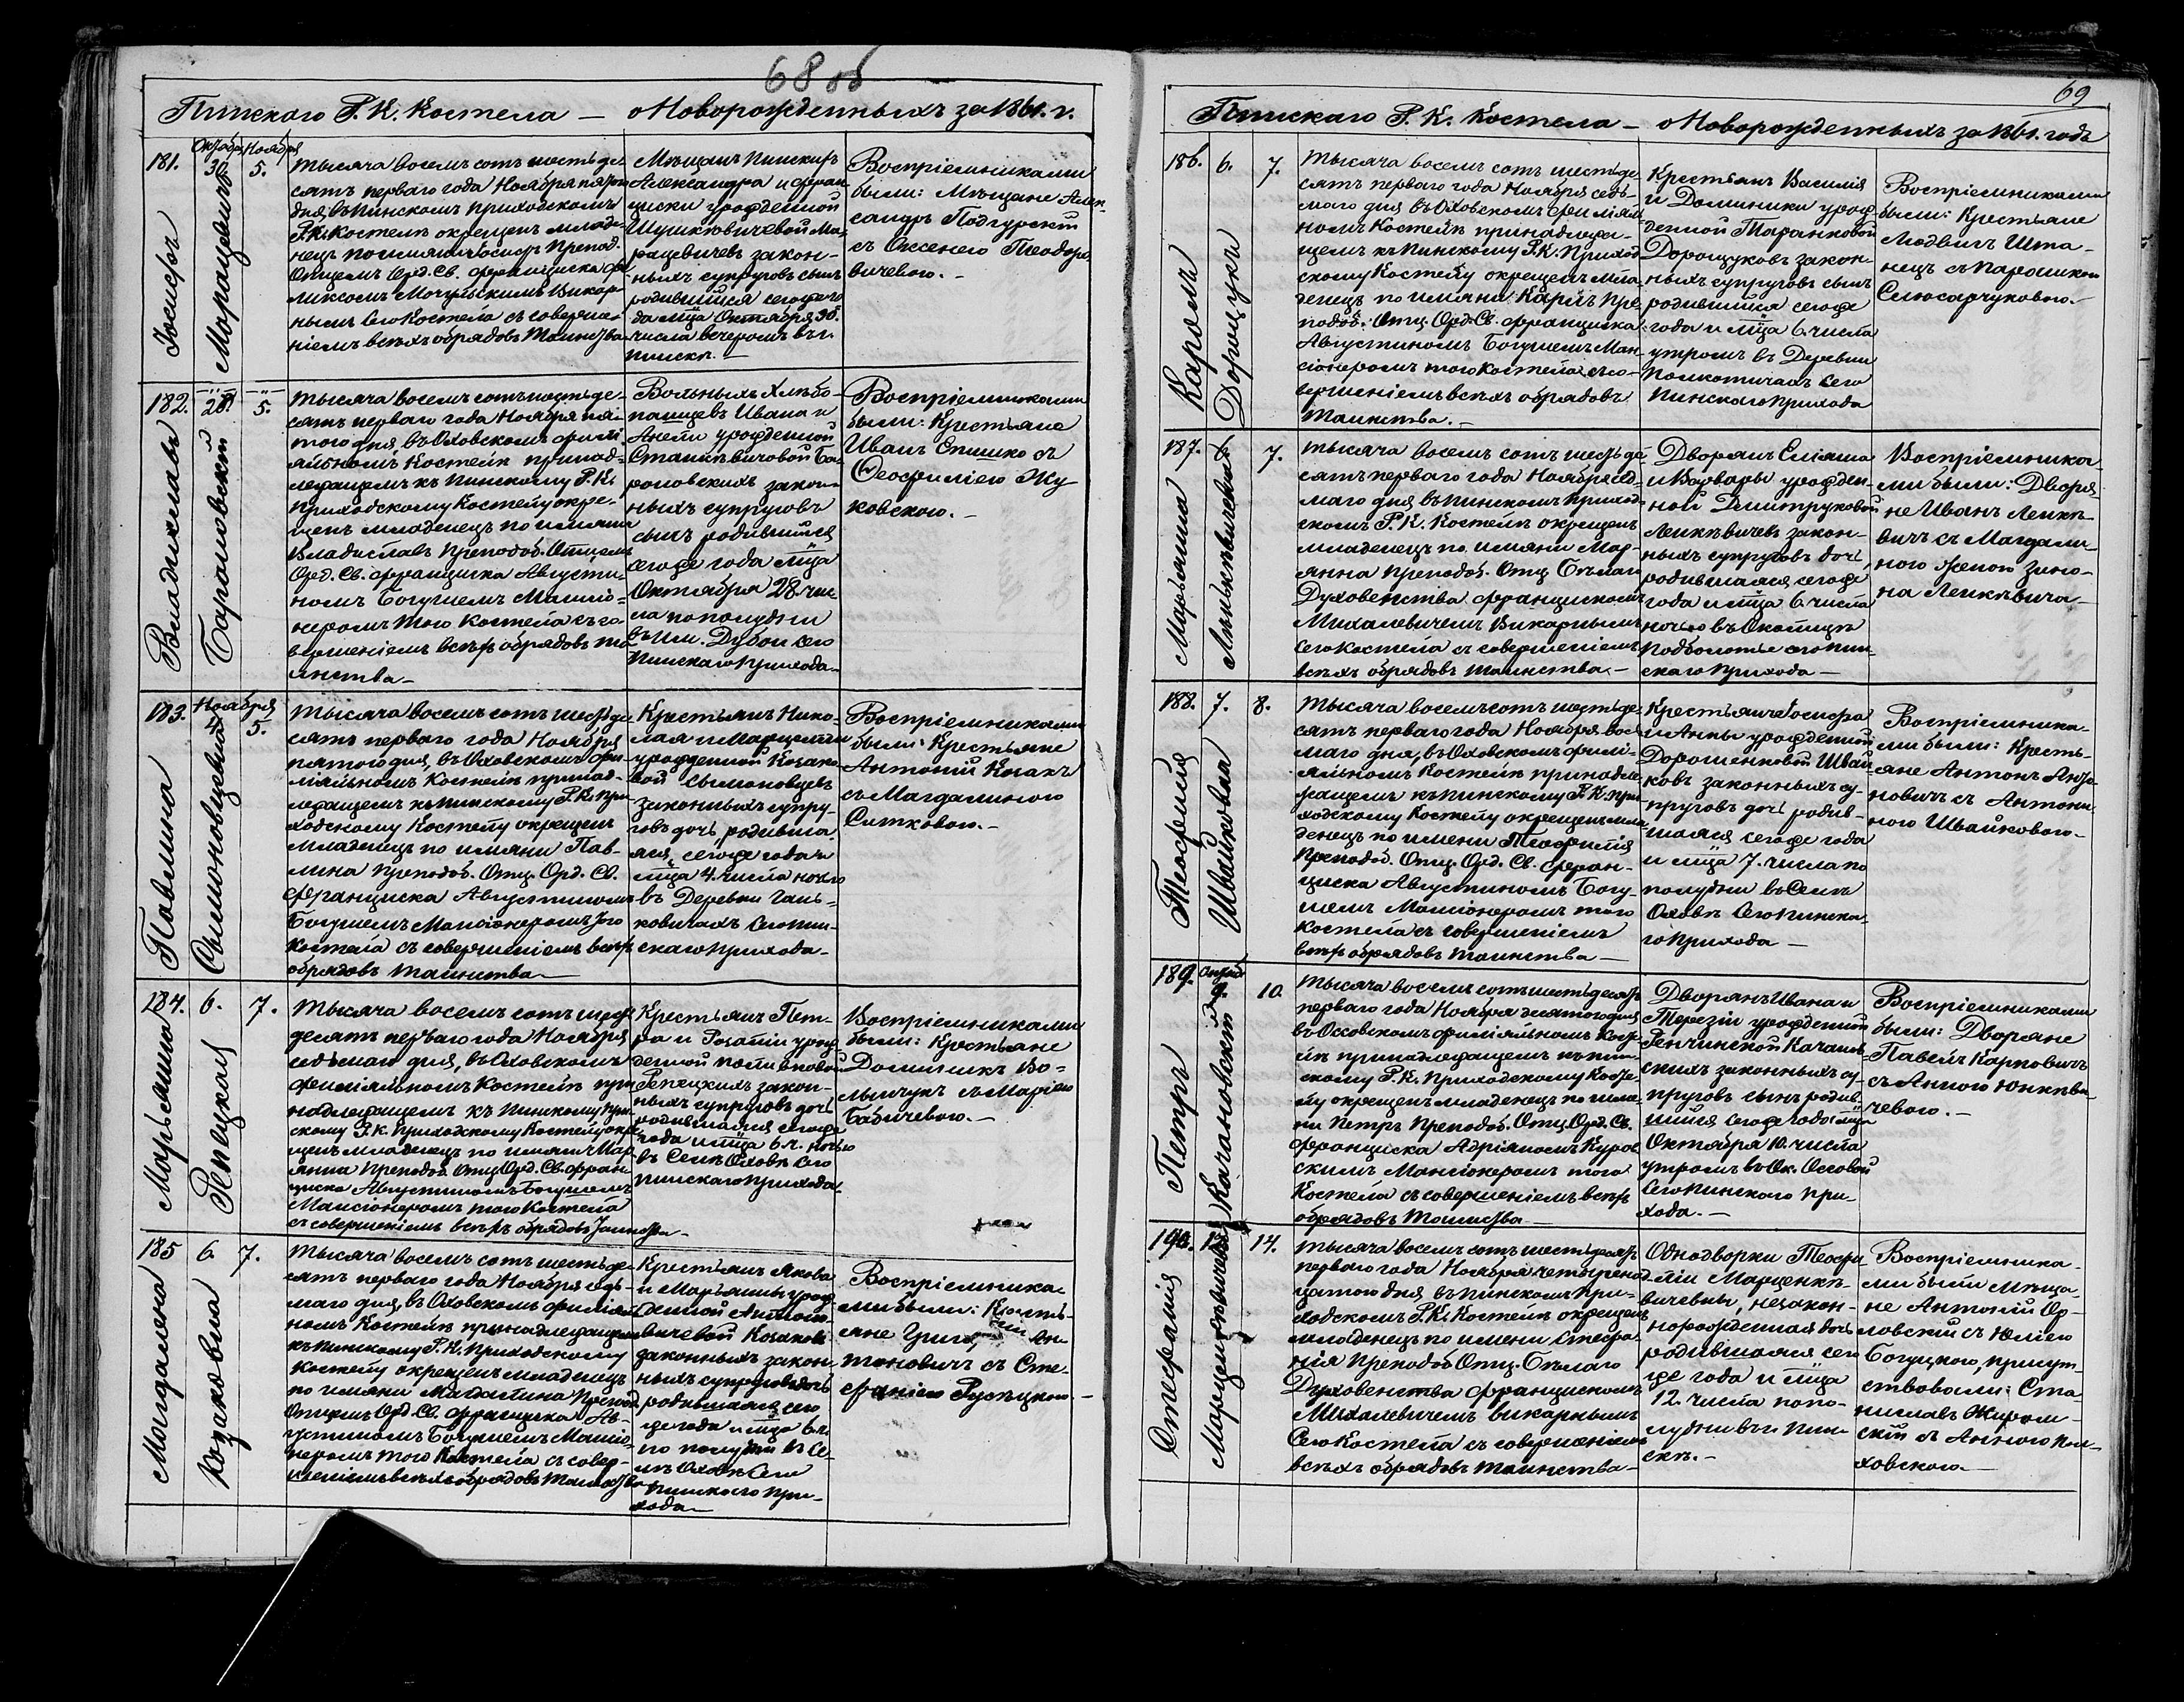 68 об
Пинскаго Р. К. Костела — о Новорожденныхъ за 1861. г.
181.
Октября Ноября
30. 5.
Іосифъ
Марацевичъ
Тысяча восемь сотъ шестьде-
сятъ перваго года Ноября пятаго
дня, въ Пинскомъ Приходскомъ
Р.К. Костелѣ окрещенъ младе-
нецъ по имяни Іосифъ Препод.
Отцемъ Орд. Св. Франциска Фе-
ликсомъ Мочульскимъ Викар-
нымъ Сего Костела съ соверше-
ніемъ всѣхъ обрядовъ Таинства
Мѣщанъ Пинскихъ
Александра и Фран-
циски урожденной
Шушкѣвичевой Ма-
рацевичевъ закон-
ныхъ супруговъ сынъ
родившійся сегоже го-
да мца Октября 30.
числа вечеромъ въ г.
Пинскѣ. —
Воспріемниками
были: Мѣщане Алек-
сандръ Подгурскій
съ Оксенею Теодоро-
вичевою. —
182.
28. 5.
Владиславъ
Барановскій
Тысяча восемь сотъ шестьде-
сятъ перваго года Ноября пя-
того дня, въ Оховскомъ филі-
яльномъ Костелѣ принад-
лежащемъ къ Пинскому Р.К.
Приходскому Костелу окре-
щенъ младенецъ по имяни
Владиславъ Преподоб. Отцемъ
Орд. Св. Франциска Августи-
номъ Богушемъ Мансіо-
неромъ того Костела съ со-
вершеніемъ всѣхъ обрядовъ та-
инства —
Вольныхъ Хлѣбо-
пашцевъ Ивана и
Анели урожденной
Станкѣвичовой Ба-
рановскихъ закон-
ныхъ супруговъ
сынъ родившійся
сегоже года мца
Октября 28. чис-
ла по полудни
въ Им. Дубои сего
Пинскаго Прихода —
Воспріемниками
были: Крестьяне
Иванъ Епишко съ
Ѳеофилією Жу-
ковскою. —
183.
Ноября
4. 5.
Павлина
Сымоновицевна
Тысяча восемь сотъ шестьде-
сятъ перваго года Ноября
пятого дня, въ Оховскомъ фи-
ліяльномъ Костелѣ принад-
лежащемъ къ Пинскому Р.К. При-
ходскому Костелу окрещенъ
Младенецъ по имяни Пав-
лина Преподоб. Отц. Орд. Св.
Франциска Августиномъ
Богушемъ Мансіонеромъ того
Костела съ совершеніемъ всѣхъ
обрядовъ таинства —
Крестьянъ Нико-
лая и Марцелли
урожденной Козако-
вой Сымоновцевъ
законныхъ супру-
говъ дочь, родивша-
яся сегоже года и
мца 4. числа ночью
въ Деревни Гань-
ковичахъ Сего Пин-
скаго прихода —
Воспріемниками
были: Крестьяне
Антоній Козакъ
съ Магдалиною
Ситковою. —
184. 6. 7.
Марьянна
Репецкая
Тысяча восемь сотъ шесть-
десятъ перваго года Ноября
седьмаго дня, въ Оховскомъ
филіяльномъ Костелѣ при-
надлежащемъ къ Пинскому При-
скому Р.К. Приходскому Костелу окре-
щенъ младенецъ по имяни Мар-
янна Преподоб. Отц. Орд. Св. Фран-
циска Августиномъ Богушемъ
Мансіонеромъ того Костела
съ совершеніемъ всѣхъ обрядовъ Таинства —
Крестьянъ Пет-
ра и Розаліи урож-
денной Поливковой
Репецкихъ закон-
ныхъ супруговъ дочь
родившаяся сегоже
года и мца 6. ч. ночью
въ Селѣ Оховѣ Сего
Пинскаго Прихода —
Воспріемниками
были: Крестьяне
Доминикъ Во-
лынчукъ съ Марією
Бабичевою. —
185 6. 7.
Магдалена
Козаковна
Тысяча восемь сотъ шестьде-
сятъ перваго года Ноября седь-
маго дня, въ Оховскомъ филіяль-
номъ Костелѣ принадлежащемъ
къ Пинскому Р.К. Приходскому
Костелу окрещенъ младенецъ
по имяни Магдалина Препод.
Отцемъ Орд. Св. Франциска Ав-
густиномъ Богушемъ Мансіо-
неромъ того Костела съ совер-
шеніемъ всѣхъ обрядовъ Таинства
Крестьянъ Якова
и Марьянны урож-
денной Антоно-
вичевой Козаковъ
законныхъ закон-
ныхъ супруговъ дочь
родившаяся сего
же года и мца 6. ч.
по полудни въ Се-
лѣ Оховѣ Сего
Пинскаго При-
хода —
Воспріемника-
ми были: Кресть-
яне Ан-
тоновичъ съ Сте-
фанією Русѣцкою. —
69
Пинскаго Р. К. Костела — о Новорожденныхъ за 1861. годъ
186. 6. 7.
Кароль
Дорощукъ
Тысяча восемь сотъ шестьде-
сятъ перваго года Ноября седь-
маго дня въ Оховскомъ филіяль-
номъ Костелѣ принадлежа-
щемъ къ Пинскому Р.К. Приход-
скому Костелу окрещенъ мла-
денецъ по имяни Карлъ Пре-
подоб. Отц. Орд. Св. Франциска
Августиномъ Богушемъ Ман-
сіонеромъ того Костела съ со-
вершеніемъ всѣхъ обрядовъ
Таинства. —
Крестьянъ Василія
и Доминики урож-
денной Таранковой
Дорощуковъ закон-
ныхъ супруговъ сынъ
родившійся сегоже
года и мца 6. числа
утромъ въ Деревни
Полкотичахъ Сего
Пинскаго Прихода
Воспріемниками
были: Крестьяне
Людвигъ Шта-
нецъ съ Параскою
Слюсарчуковою. —
187. 6. 7.
Марьянна
Ленкѣвичовна
Тысяча восемь сотъ шестьде-
сятъ перваго года Ноября сед-
маго дня въ Пинскомъ Приход-
скомъ Р.К. Костелѣ окрещенъ
младенецъ по имяни Мар-
янна Преподоб. Отц. Бѣлаго
Духовенства Францискомъ
Михалевичемъ Викарнымъ
Сего Костела съ совершеніемъ
всѣхъ обрядовъ таинства —
Дворянъ Еліяша
и Варвары урожден-
ной Дмитруковой
Ленкѣвичевъ закон-
ныхъ супруговъ дочь,
родившаяся сегоже
года и мца 6. числа
ночью въ Околицѣ
Подболотье сего Пин-
скаго Прихода —
Воспріемника-
ми были: Дворя-
не Иванъ Ленкѣ-
вичъ съ Магдали-
ною женою Зино-
на Ленкѣвича —
188. 7. 8.
Теофилія
Швайковна
Тысяча восемь сотъ шестьде-
сятъ перваго года Ноября вос-
маго дня, въ Оховскомъ фили-
яльномъ Костелѣ принадле-
жащемъ къ Пинскому Р.К. При-
ходскому Костелу окрещенъ мла-
денецъ по имени Теофилія
Преподоб. Отц. Орд. Св. Фран-
циска Августиномъ Богу-
шемъ Мансіонеромъ того
Костела съ совершеніемъ
всѣхъ обрядовъ таинства —
Крестьянъ Іосифа
и Анны урожденной
Дорошенковой Швай-
ковъ законныхъ су-
пруговъ дочь родив-
шаяся сегоже года
и мца 7. числа по
полудни въ Селѣ
Оховѣ Сего Пинска-
го Прихода —
Воспріемника-
ми были: Кресть-
яне Антонъ Анто-
новичъ съ Антони-
ною Швайковою. —
189. 10.
Петръ
Качановскій
Тысяча восемь сотъ шестьдесятъ
перваго года Ноября десятого дня
въ Оховскомъ филіяльномъ Косте-
лѣ принадлежащемъ къ Пин-
скому Р.К. Приходскому Косте-
лу окрещенъ младенецъ по имя-
ни Петръ Преподоб. Отц. Орд. Св.
Франциска Адріяномъ Куров-
скимъ Мансіонеромъ того
Костела съ совершеніемъ всѣхъ
обрядовъ Таинства —
Дворянъ Ивана и
Терезіи урожденной
Генчинской Качанов-
скихъ законныхъ су-
пруговъ сынъ родив-
шійся сегоже года мца
Октября 10. числа
утромъ въ Ок. Оссовой
Сего Пинскаго При-
хода. —
Воспріемниками
были: Дворяне
Павелъ Карповичъ
съ Анною Юнкѣви-
чевою. —
190. 12. 14.
Стефанія
Марценкѣвичевна
Тысяча восемь сотъ шестьдесятъ
перваго года Ноября четырнад-
цатого дня въ Пинскомъ При-
ходскомъ Р.К. Костелѣ окрещенъ
младенецъ по имени Стефа-
нія Преподоб. Отц. Бѣлаго
Духовенства Францискомъ
Михалевичемъ викарнымъ
Сего Костела съ совершеніемъ
всѣхъ обрядовъ таинства —
Однодворки Теофи-
ліи Марценкѣ-
вичевны, незакон-
норожденная дочь
родившаяся сего
же года и мца
12. числа попо-
лудни въ г. Пин-
скѣ. —
Воспріемника-
ми были Мѣща-
не Антоній Ор-
ловскій съ Юлією
Богуцкою, присут-
ствовали: Ста-
ниславъ Жиром-
скій съ Анною Мал-
ховскою. —